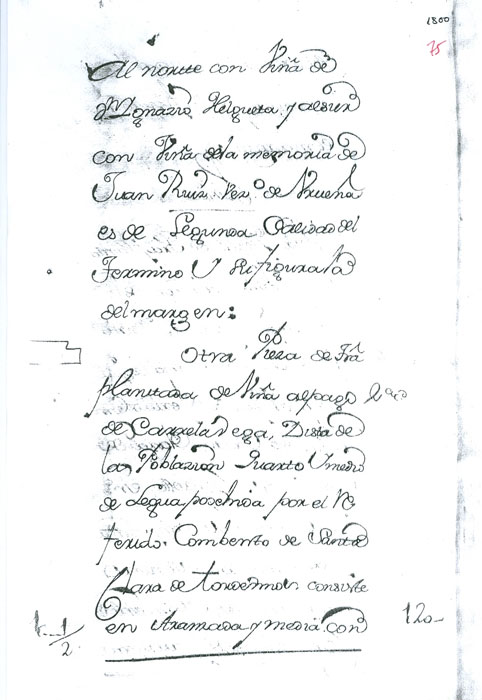 1800
75
Al norte con Viña de
Dn Ygnazio Helgueta y al sur
con Viña dela memoria de
Juan Ruiz Vezo de Nrueña
es de Segunda Calidad del
Termino Y su figura la
del margen:
Otra Pieza de Tra
plantada de Viña al pago
de Carrelavega, Dista de
la Poblazion Quarto Y medio
de Legua posehida por el Re
ferido Combento de Santa
Clara de tordesillas consiste
en Aranzada y media con
1 1/2
120